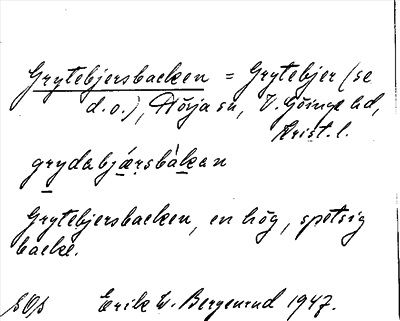 Grytebjersbacken = Grytebjer (se
d.o.), Hörja sn, V. Göinge hd,
Krist. l.
grydabjärsbàkan
Grytebjersbacken, en hög, spetsig
backe.
SOs Erik W. Bergenrud 1947.